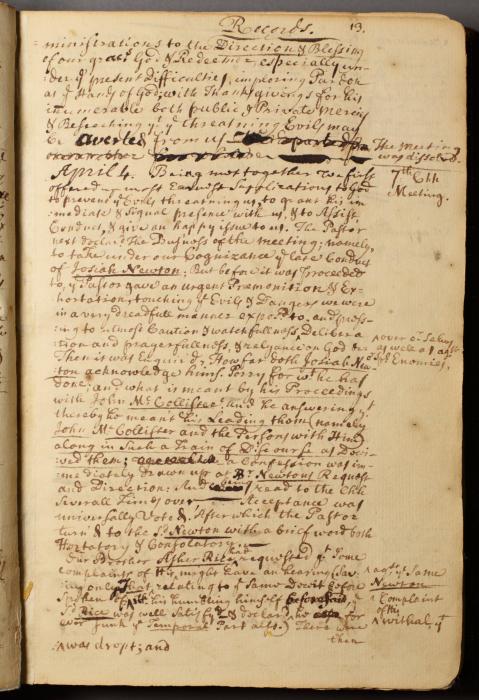 Records. 13.
ministrations to the Direction & Blessing
of our great God & Redeemer, especially un-
der ye present difficulties, imploring Pardon
at ye Hands of God; with Thanksgivings for his
innumerable both public & Private Mercies
& Beseeching yt ye threatning Evils may
be averted from us
The Meeting
was dissolved.
April 4. Being met together we first
7th Chh
Meeting.
offered up most Earnest Supplications to God
to prevent ye Evils threatning us, to grant his im-
mediate & Signal presence with us, & to Assist,
Conduct, & give an happy issue to us. The Pastor
next declar'd the Business of the meeting; namely,
to take under our Cognizance ye late Conduct
of Josiah Newton; But before it was proceeded
to, ye Pastor gave an urgent Præmonition & Ex-
hortation, touching ye Evils & Dangers we were
in a very dreadfull manner expos'd to, and press-
ing to utmost Caution & watchfullness, Delibera
tion and prayerfullness, & relyance on God
Then it was Enquired, How far doth Josiah New-
ton acknowledge hims. Sorry for wt he has
done; and what is meant by his Proceedings
with John McCollister And he answering yt
thereby he meant his Leading them (namely
John McCollister and the Persons with Him)
along in Such a Train of Discourse as Decei-
ved them; a Confession was im-
mediately drawn up at Br Newtons Request
and Direction: And being read to the Chh
Severall Times over Acceptance was
universally Voted. After which the Pastor
turn'd to the sd Newton with a brief word both
Hortatory & Consolatory.
Our Brother Asher Rice had requested yt Some
complaints of His might have an hearing
only
relating to ye Same
Newton
Complaint
of his
his humbling himself
sd Rice was well Satisfyd & declar'd he
Temporal Part
There were
then
was dropt; and